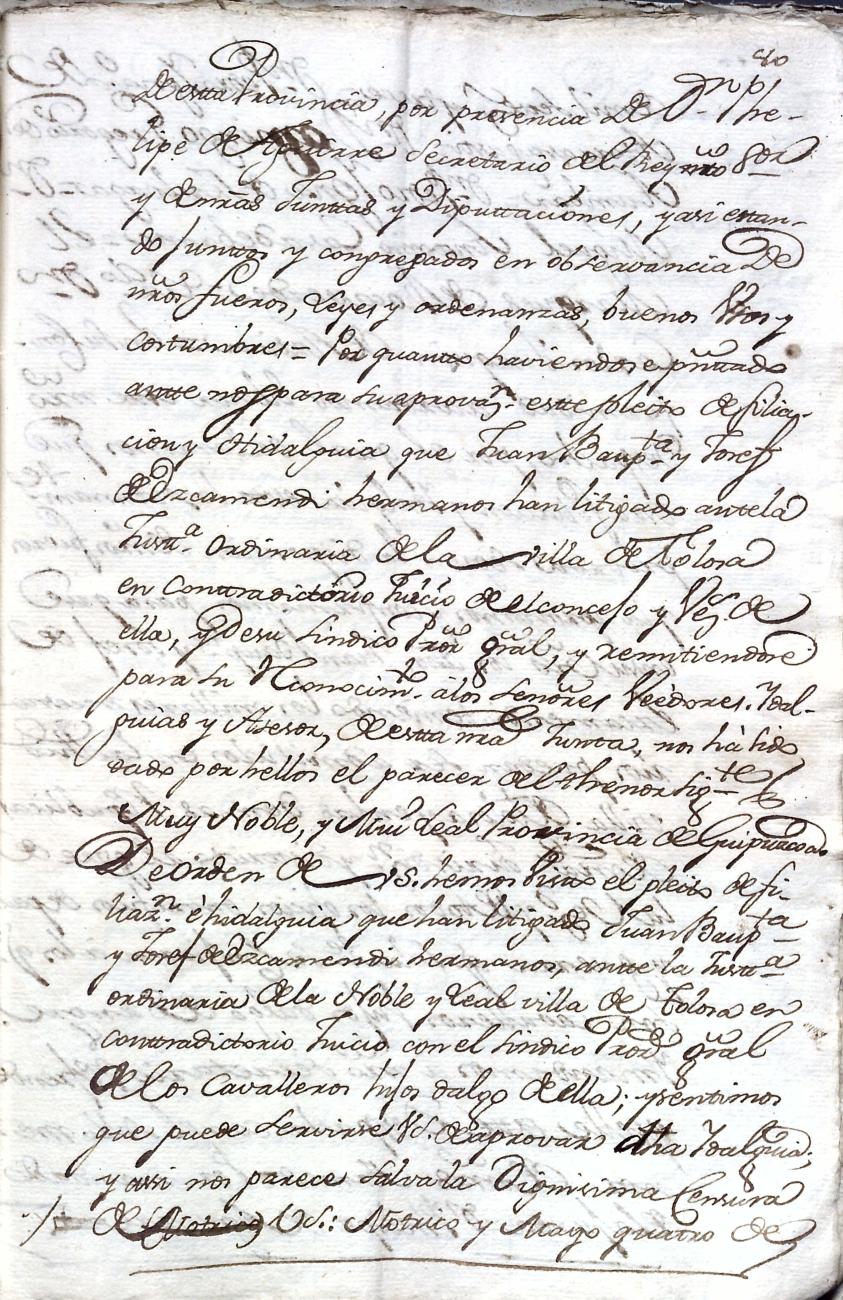 80
de estta Provincia, por presencia de Dn. Phe-
lipe de Aguirre Secretario del Rey nro Sor
y de nras Junttas y Diputtaciones, y asi estan-
do Junttos y congregados en observancia de
nros fueros, Leyes y ordenanzas, buenos Usos y
costumbres = Por quantto haviendose pnttado
antte nos para su aprovazn. estte pleito de filia-
cion y Hidalguia que Juan Baupta. y Josef
de Ezcamendi hermanos han litigado ante la
Justta. Ordinaria de la villa de Tolosa
en Conttradictorio Juicio del concejo y Vezs. de
ella, y de su Sindico Pror. gral, y remitiendose
para su Reconocimto. â los señores Veedores. Ydal-
guias y Asesor, de estta nra Juntta, nos hà sido
dado por hellos el parecer del thenor sigte
Muy Noble, y Muy Leal Provincia de Guipuzcoa
De orden de VS. hemos visto el pleito de fi-
liazn. è hidalguia que han litigado Juan Baupta
y Josef de Ezcamendi hermanos, antte la Justta
ordinaria de la Noble y Leal villa de Tolosa en
conttradictorio Juicio con el Sindico Pror gral
de los Cavalleros hijos dalgo de ella; y sentimos
que puede servirse VS. de aprovar dha Ydalguia;
y assi nos parece salva la Dignisima Censura
de (Motrico) VS.: Motrico y Mayo quatro de